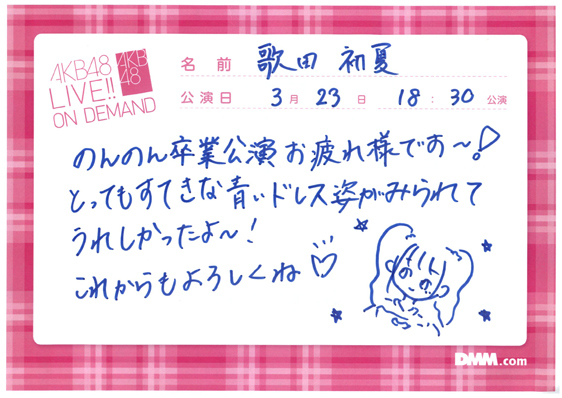 AKB48
LIVE!!
ON DEMAND
AKB
48
名前 歌田 初夏
公演日 3月 23日 18:30 公演
のんのん卒業公演お疲れ様です〜!
とってもすてきな青いドレス姿がみられて
うれしかったよ〜!
これからもよろしくね♡
のん
DMM.com